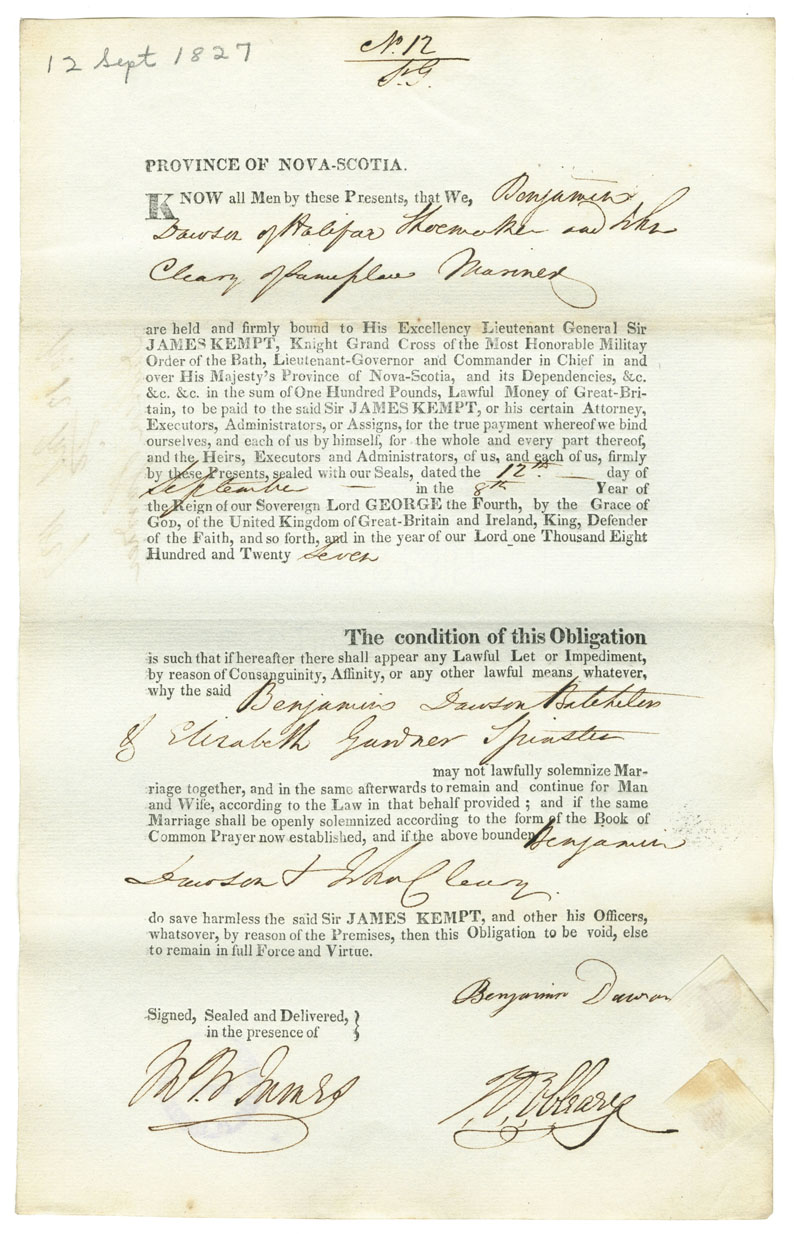 12 Sept 1827
No. 12
PROVINCE OF NOVA-SCOTIA.
KNOW all Men by these Presents, that We, Benjamin
Dawson of Halifax Shoemaker and John
Cleary of same place Mariner
are held and firmly bound to His Excellency Lieutenant General Sir
JAMES KEMPT, Knight Grand Cross of the Most Honorable Militay
Order of the Bath, Lieutenant-Governor and Commander in Chief in and
over His Majesty's Province of Nova-Scotia, and its Dependencies, &c.
&c. &c. in the sum of One Hundred Pounds, Lawful Money of Great-Bri-
tain, to be paid to the said Sir JAMES KEMPT, or his certain Attorney,
Executors, Administrators, or Assigns, for the true payment whereof we bind
ourselves, and each of us by himself, for the whole and every part thereof,
and the Heirs, Executors and Administrators, of us, and each of us, firmly
by these Presents, sealed with our Seals, dated the 12th. day of
September — in the 8th — Year of
the Reign of our Sovereign Lord GEORGE the Fourth, by the Grace of
GOD, of the United Kingdom of Great-Britain and Ireland, King, Defender
of the Faith, and so forth, and in the year of our Lord one Thousand Eight
Hundred and Twenty Seven
The condition of this Obligation
is such that if hereafter there shall appear any Lawful Let or Impediment,
by reason of Consanguinity, Affinity, or any other lawful means whatever,
why the said Benjamin Dawson Batchelor
& Elizabeth Gardner Spinster
may not lawfully solemnize Mar-
riage together, and in the same afterwards to remain and continue for Man
and Wife, according to the Law in that behalf provided ; and if the same
Marriage shall be openly solemnized according to the form of the Book of
Common Prayer now established, and if the above bounden Benjamin
Dawson & John Cleary.
do save harmless the said Sir JAMES KEMPT, and other his Officers,
whatsover, by reason of the Premises, then this Obligation to be void, else
to remain in full Force and Virtue.
Benjamin Dawson
Signed, Sealed and Delivered, }
in the presence of
James
Cleary